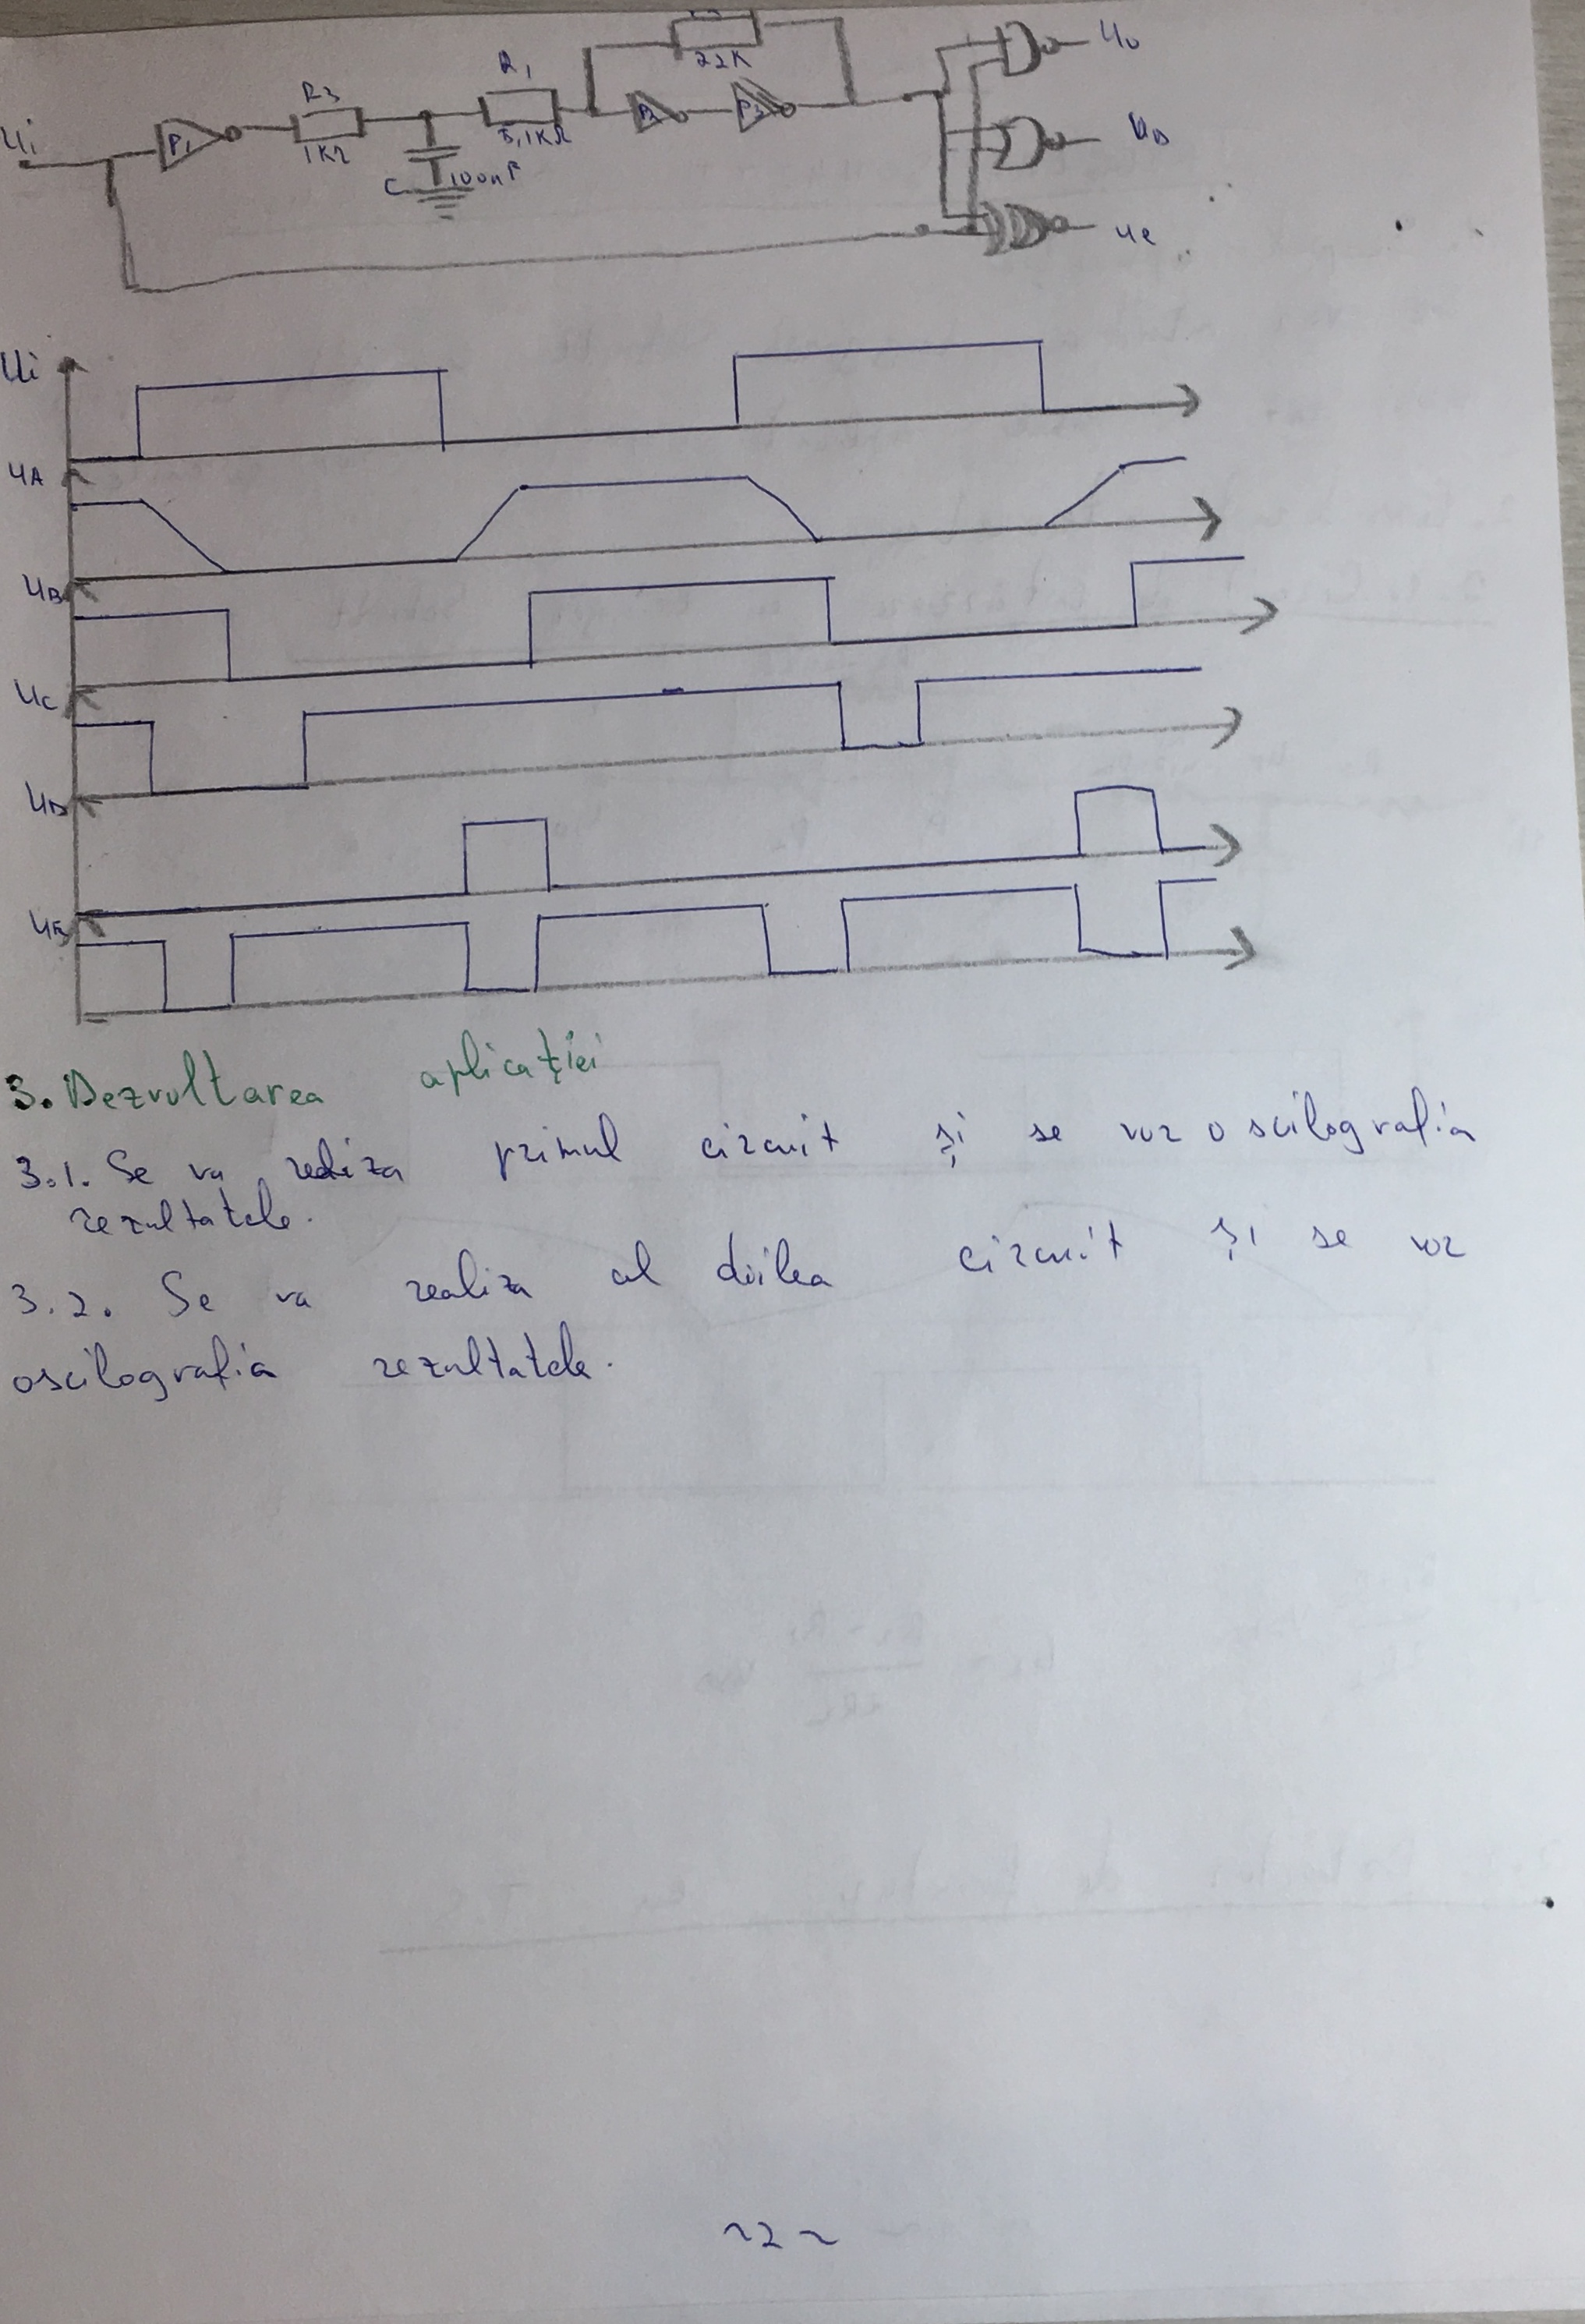 R1
22K
R3
U0
Ui
P1
1KΩ
5,1KΩ
P2
P3
UD
C
100nF
Ue
Ui
UA
UB
UC
UD
UE
3. Dezvoltarea aplicației
3.1. Se va realiza primul circuit și se vor oscilografia
rezultatele.
3.2. Se va realiza al doilea circuit și se vor
oscilografia rezultatele.
~2~